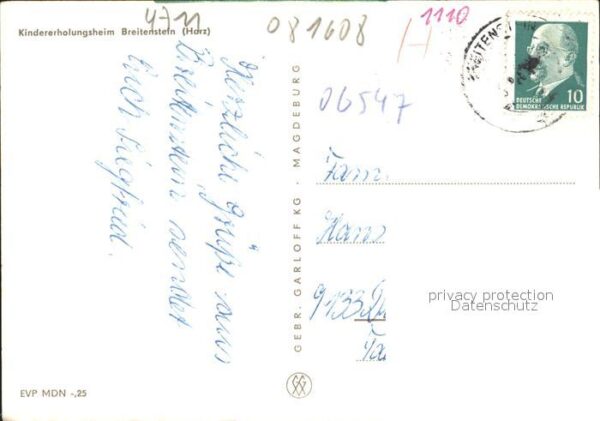 4711
081608
1110
H
Kindererholungsheim Breitenstein (Harz)
BREITENST
10
DEUTSCHE
DEMOKRATISCHE REPUBLIK
06547
Herzliche Grüße aus
Breitenstein sendet
Euch Siegfried.
GEBR. GARLOFF KG · MAGDEBURG
Fam.
Hans
9133
privacy protection
Datenschutz
EVP MDN -,25